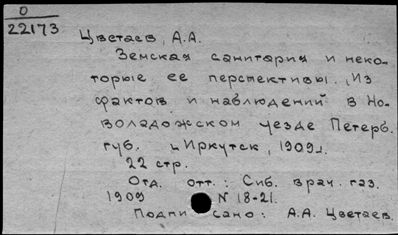 О
22173
Цветаев, А.А.
Земская санитария и неко-
торые ее перспективы. Из
фактов и наблюдений в Но-
воладожском уезде Петерб.
губ. Иркутск, 1909.
22 стр.
Отд. отт.: Сиб. врач. газ.
1909 N 18-21.
Подписано: А.А. Цветаев.